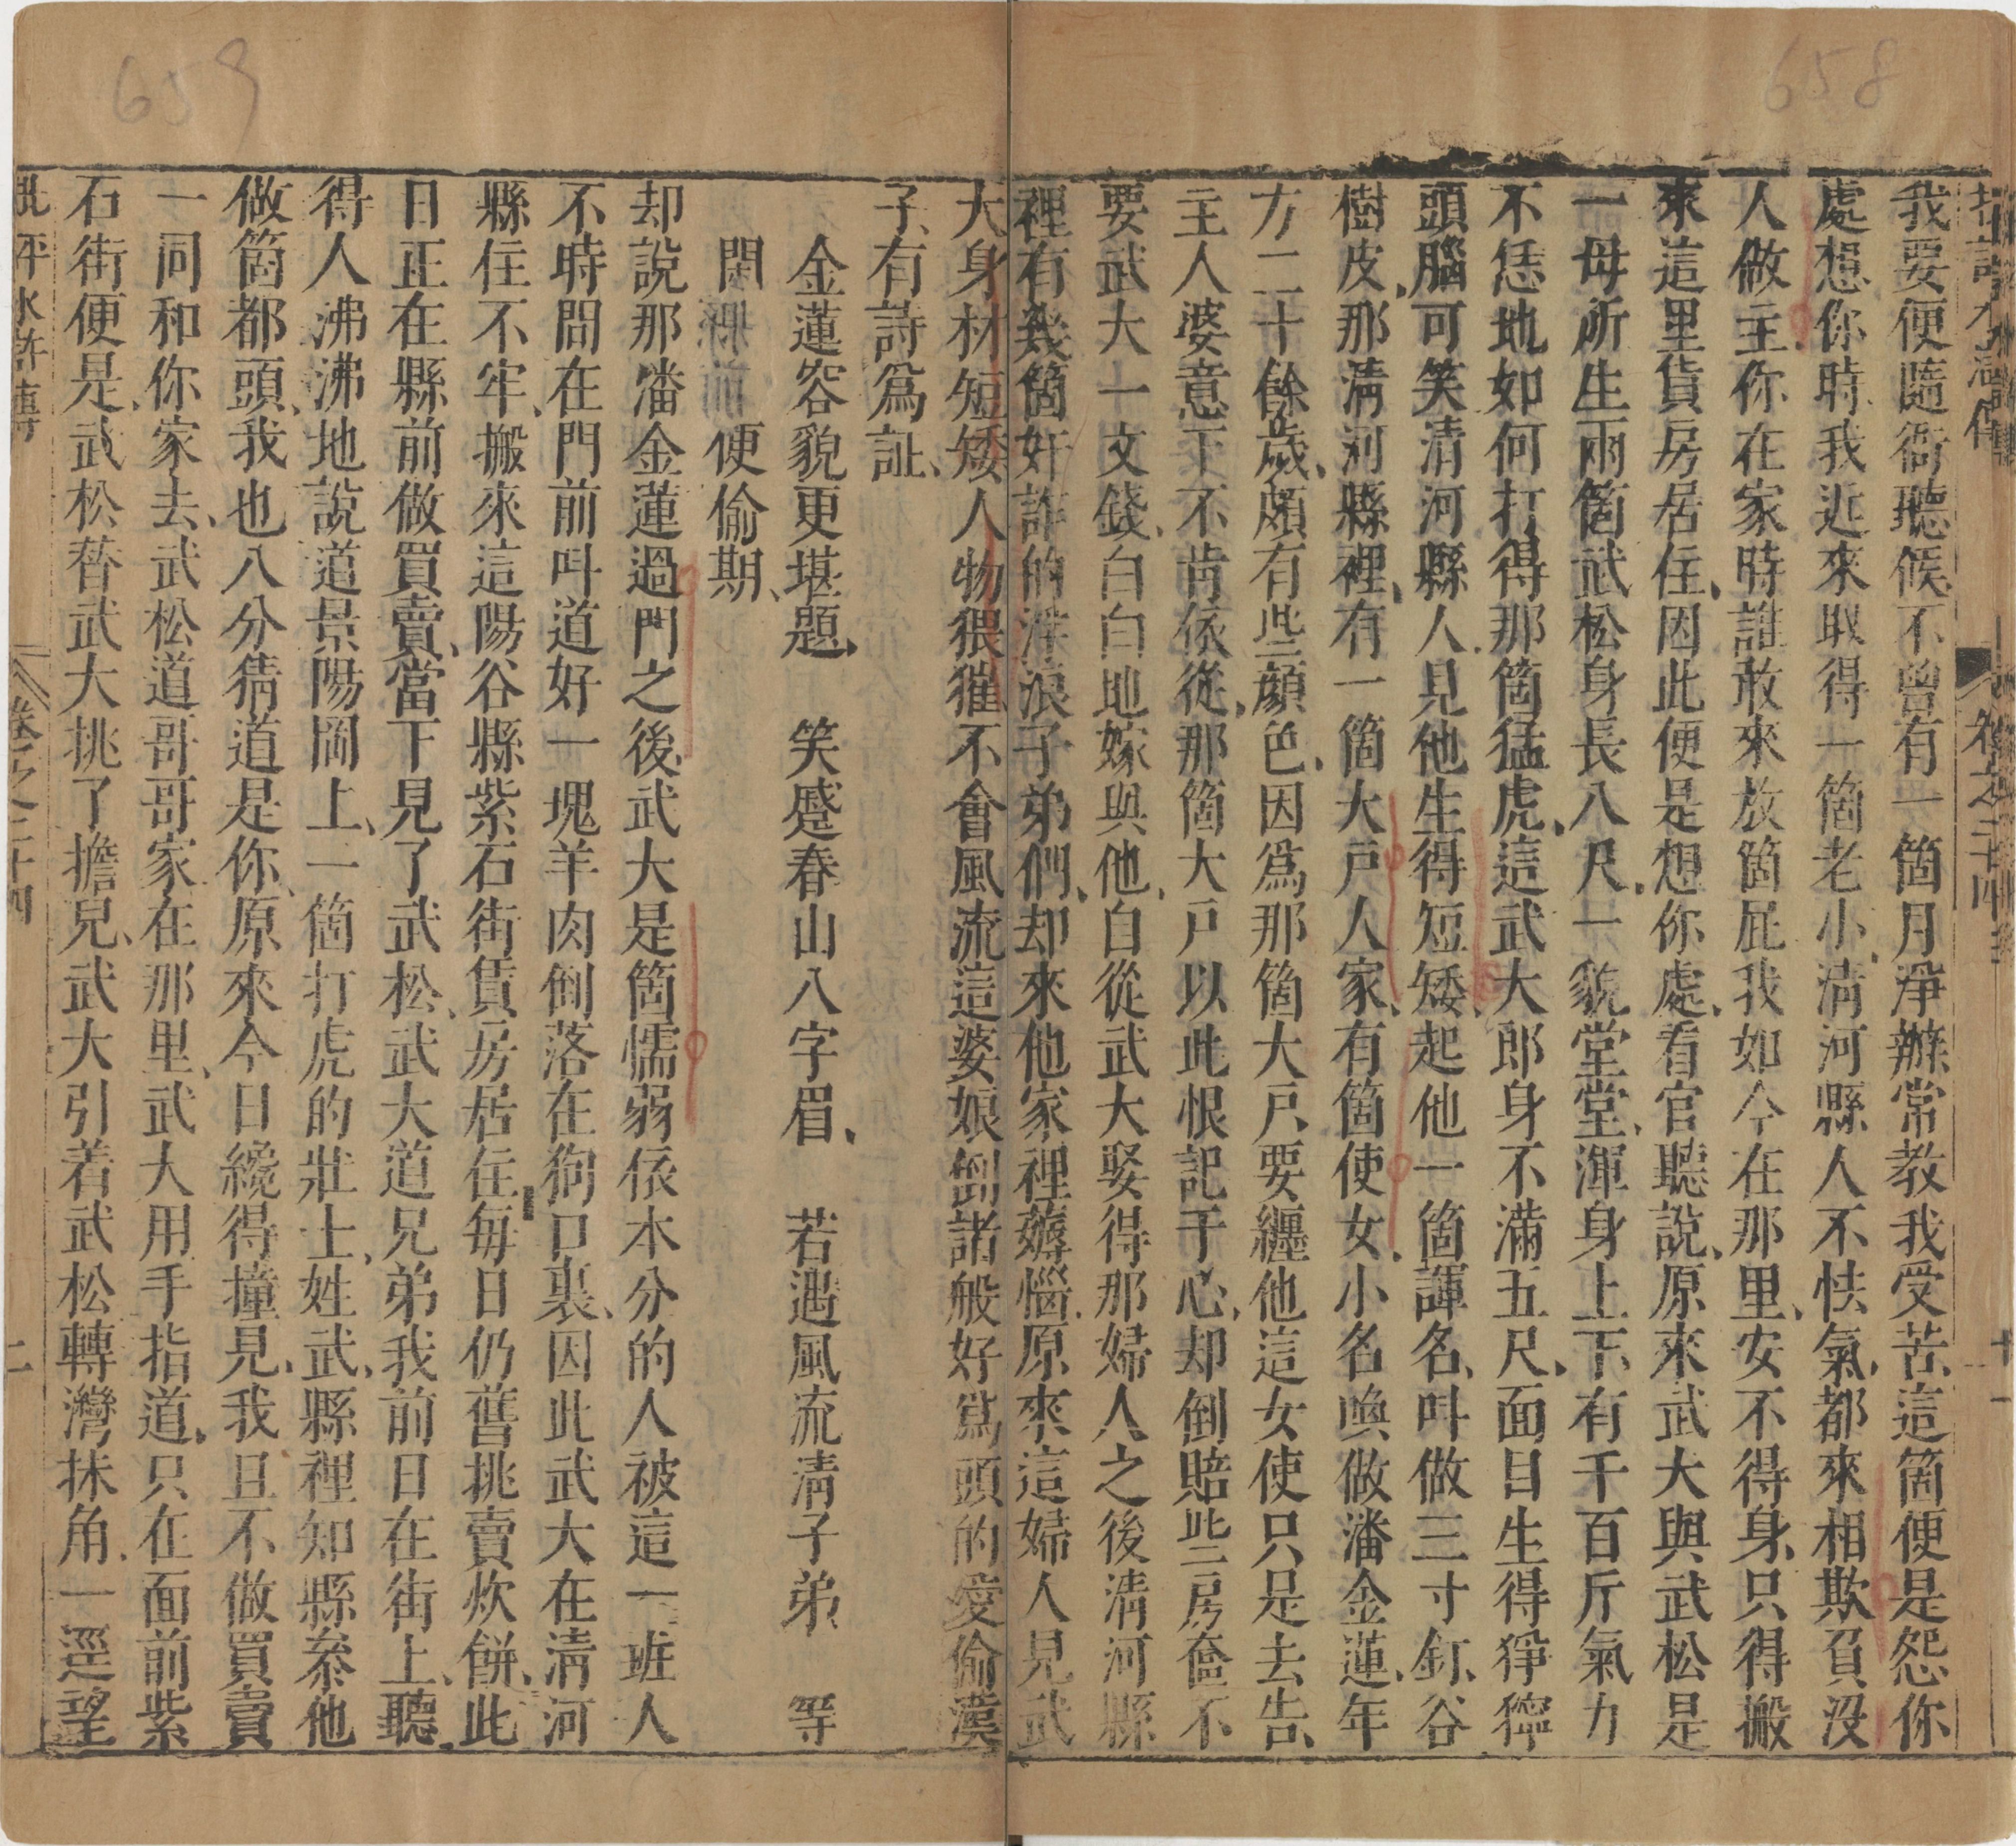 658
我要便隨衙聽候不曾有一箇月淨辦常教我受苦這箇便是怨你
處想你時我近來取得一箇老小淸河縣人不怯氣都來相欺負沒
人做主你在家時誰敢來放箇屁我如今在那里安不得身只得搬
來這里貨房居住因此便是想你處看官聽說原來武大與武松是
一母所生兩箇武松身長八尺一貌堂堂渾身上下有千百斤氣力
不恁地如何打得那箇猛虎這武大郎身不滿五尺面目生得猙獰
頭腦可笑清河縣人見他生得短矮起他一箇諢名叫做三寸釘谷
樹皮那淸河縣裡有一箇大戶人家有箇使女小名喚做潘金蓮年
方二十餘歲頗有些顔色因爲那箇大戶要纏他這女使只是去告
主人婆意下不肯依從那箇大戶以此恨記于心却倒賠些房奩不
要武大一文錢白白地嫁與他自從武大娶得那婦人之後淸河縣
裡有幾箇奸詐的浮浪子弟們却來他家裡薅惱原來這婦人見武
659
大身材短矮人物猥獕不會風流這婆娘倒諸般好爲頭的愛偷漢
子有詩爲証
金蓮容貌更堪題 笑蹙春山八字眉 若遇風流淸子弟 等
閑 便偷期
却說那潘金蓮過門之後武大是箇懦弱依本分的人被這一班人
不時間在門前叫道好一塊羊肉倒落在狗口裏因此武大在淸河
縣住不牢搬來這陽谷縣紫石街賃房居住每日仍舊挑賣炊餅此
日正在縣前做買賣當下見了武松武大道兄弟我前日在街上聽
得人沸沸地說道景陽岡上一箇打虎的壯士姓武縣裡知縣叅他
做箇都頭我也八分猜道是你原來今日纔得撞見我且不做買賣
一同和你家去武松道哥哥家在那里武大用手指道只在面前紫
石街便是武松替武大挑了擔兒武大引着武松轉灣抹角一逕望
批評水滸傳 卷之二十四 二